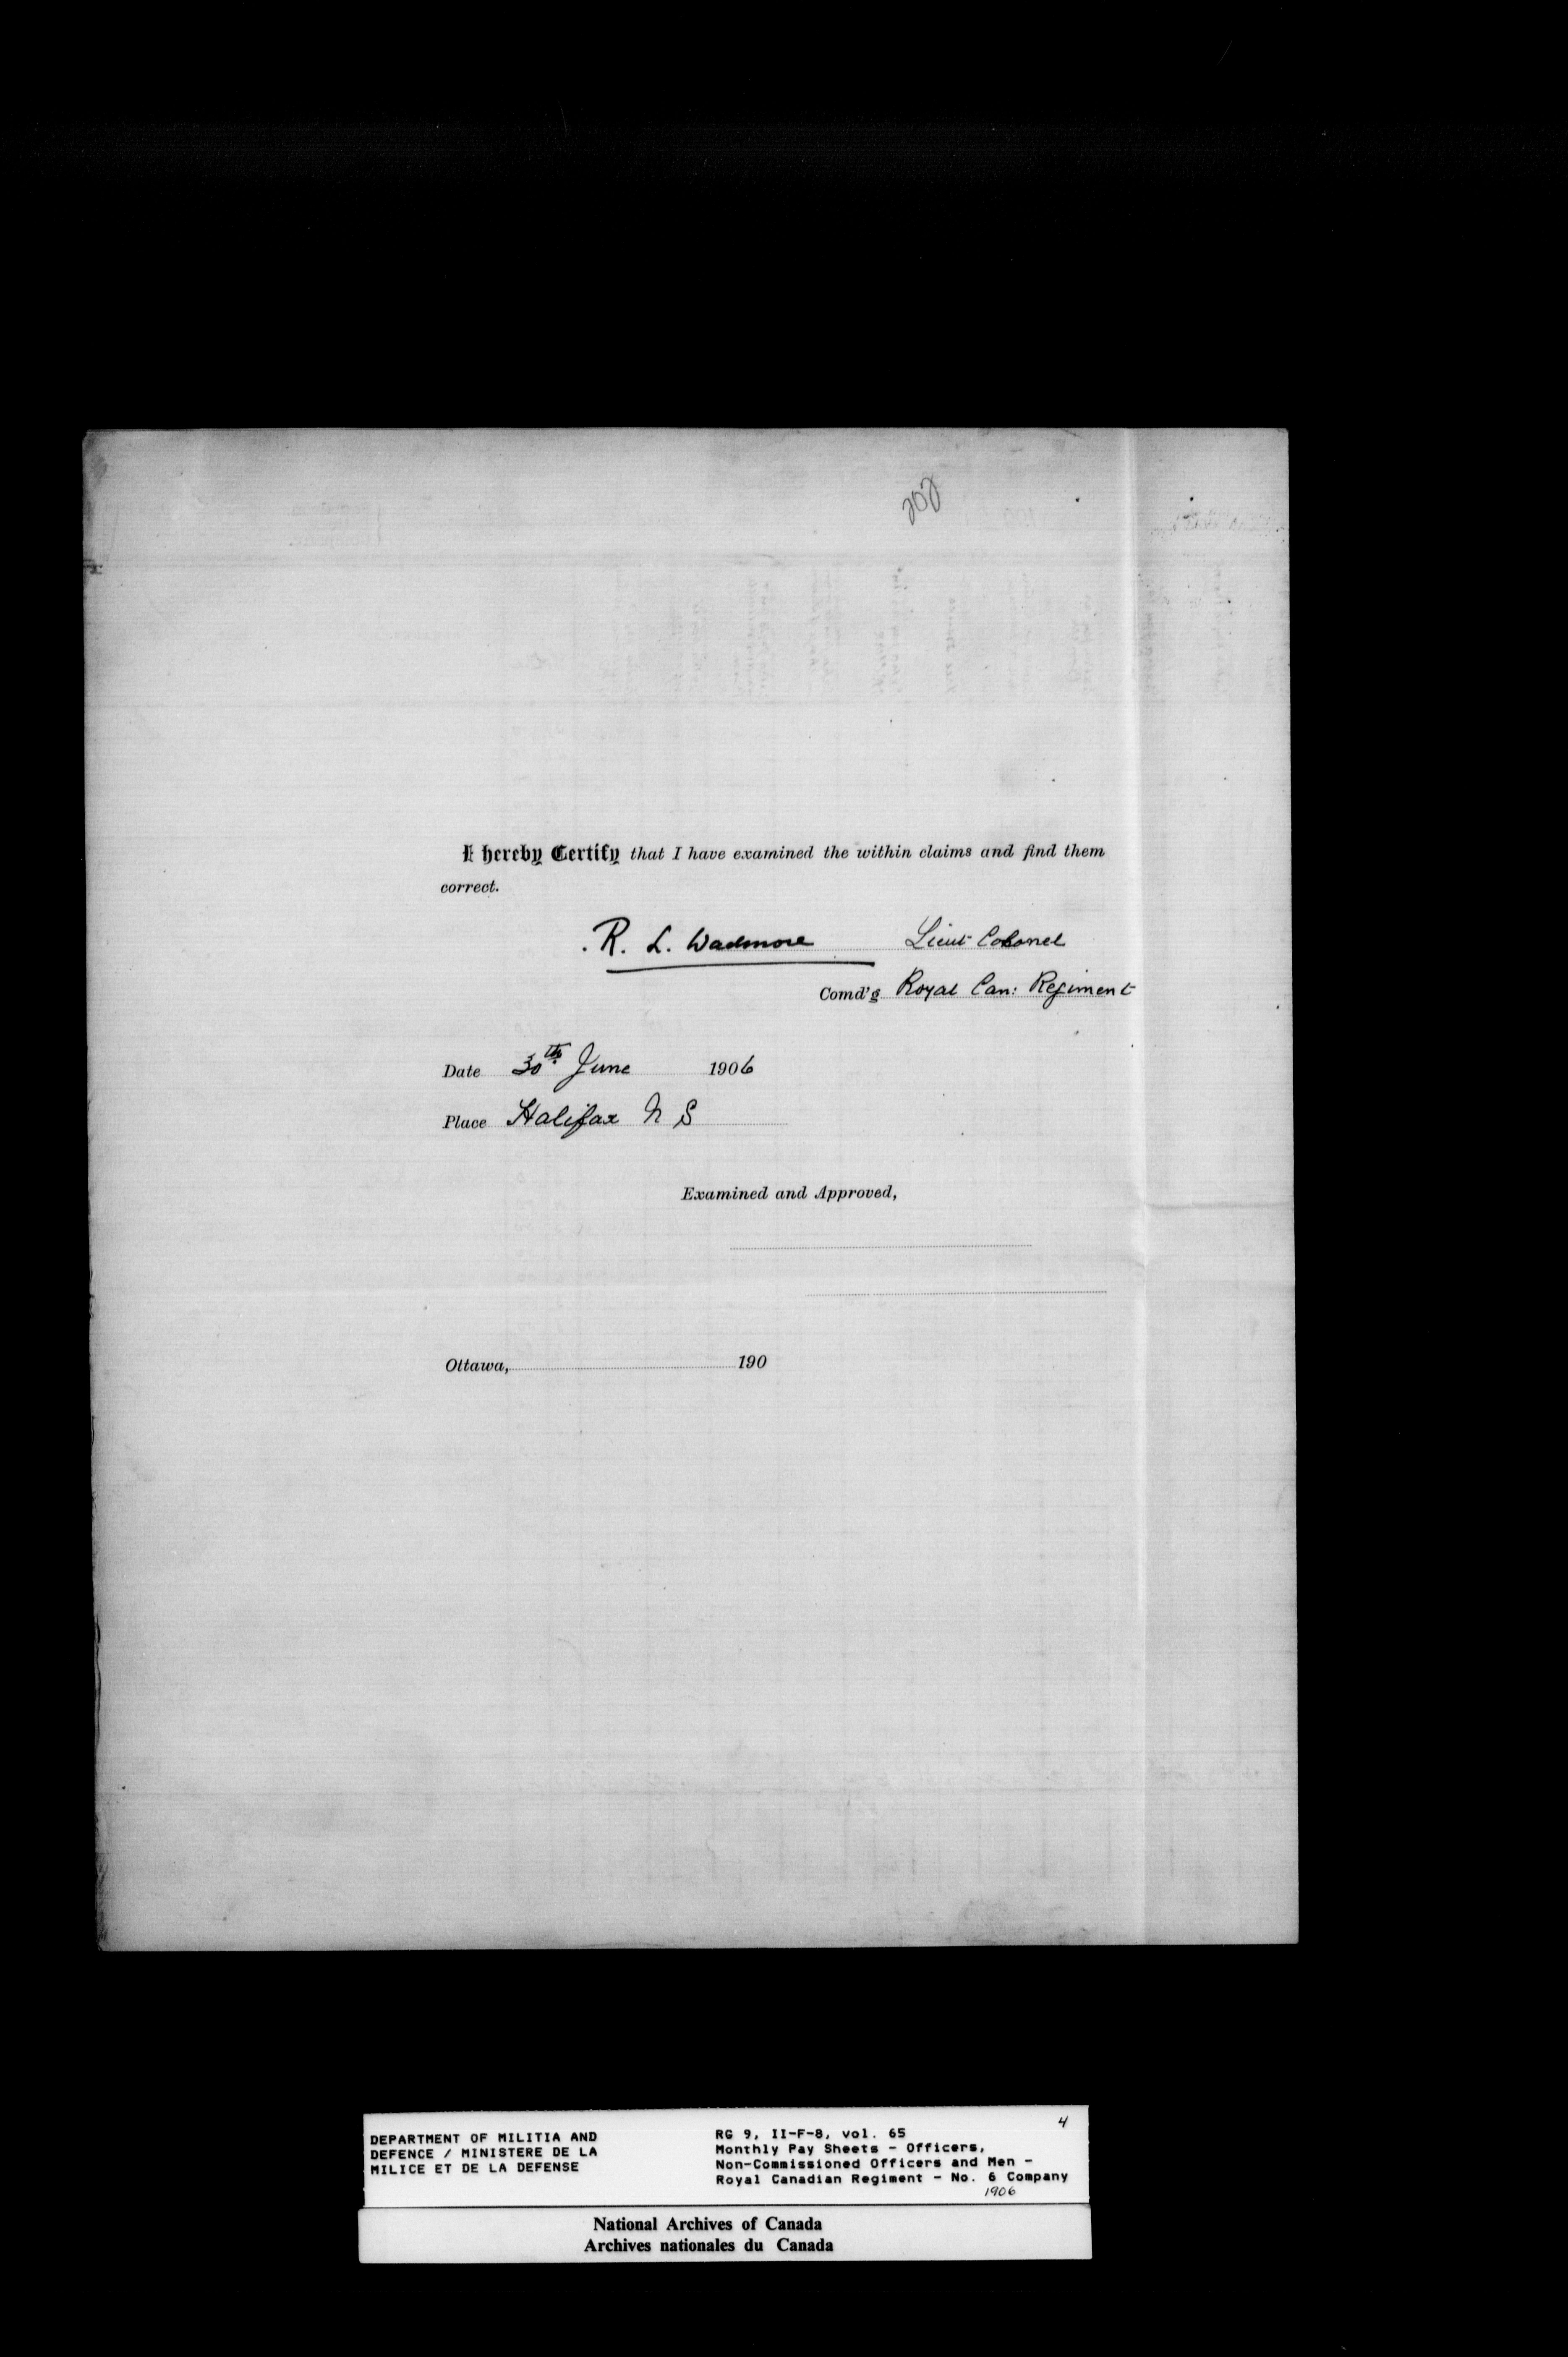 202
I hereby Certify that I have examined the within claims and find them
correct.
R. L. Wadmore Lieut Colonel
Comd'g Royal Can: Regiment
Date 30th June 1906
Place Halifax N S
Examined and Approved,
Ottawa, 190
4
DEPARTMENT OF MILITIA AND
DEFENCE / MINISTERE DE LA
MILICE ET DE LA DEFENSE
RG 9, II-F-8, vol. 65
Monthly Pay Sheets - Officers,
Non-Commissioned Officers and Men -
Royal Canadian Regiment - No. 6 Company
1906
National Archives of Canada
Archives nationales du Canada